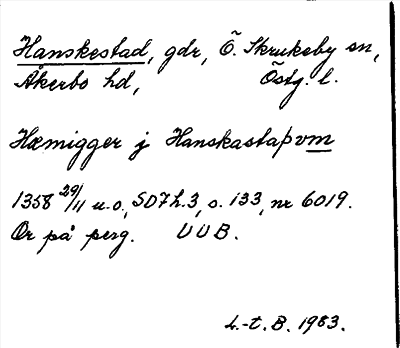 Hanskestad, gdr, Ö. Skrukeby sn,
Åkerbo hd, Östg. l.
Hæmigger j Hanskastaþum
1358 29/11 u.o., SD 7 h.3, s. 133, nr 6019.
Or på perg. UUB.
L.-t. B. 1983.